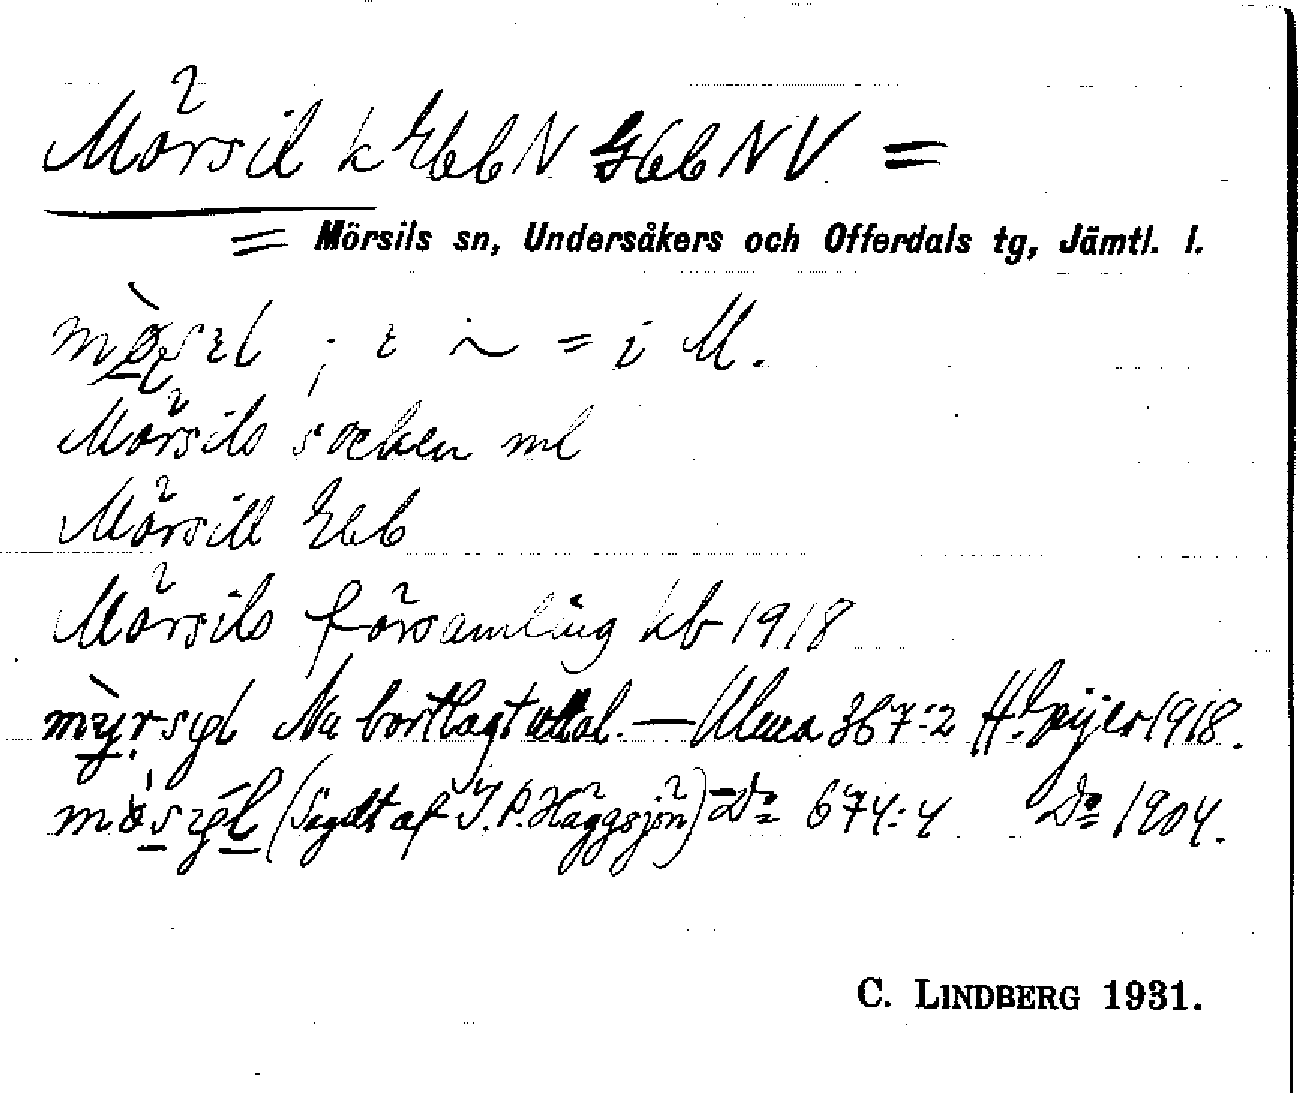 Mörsil k Ebb N Gbb NV =
= Mörsils sn, Undersåkers och Offerdals tg, Jämtl. l.
; i M.
Mörsils socken ml
Mörsill Ebb
Mörsils församling kb 1918
Nu bortlagt uttal. — Ulma 367:2 H. Geijer 1918.
(Sagdt af J. P. Häggsjön) Do 674:4 Do 1904.
C. LINDBERG 1931.